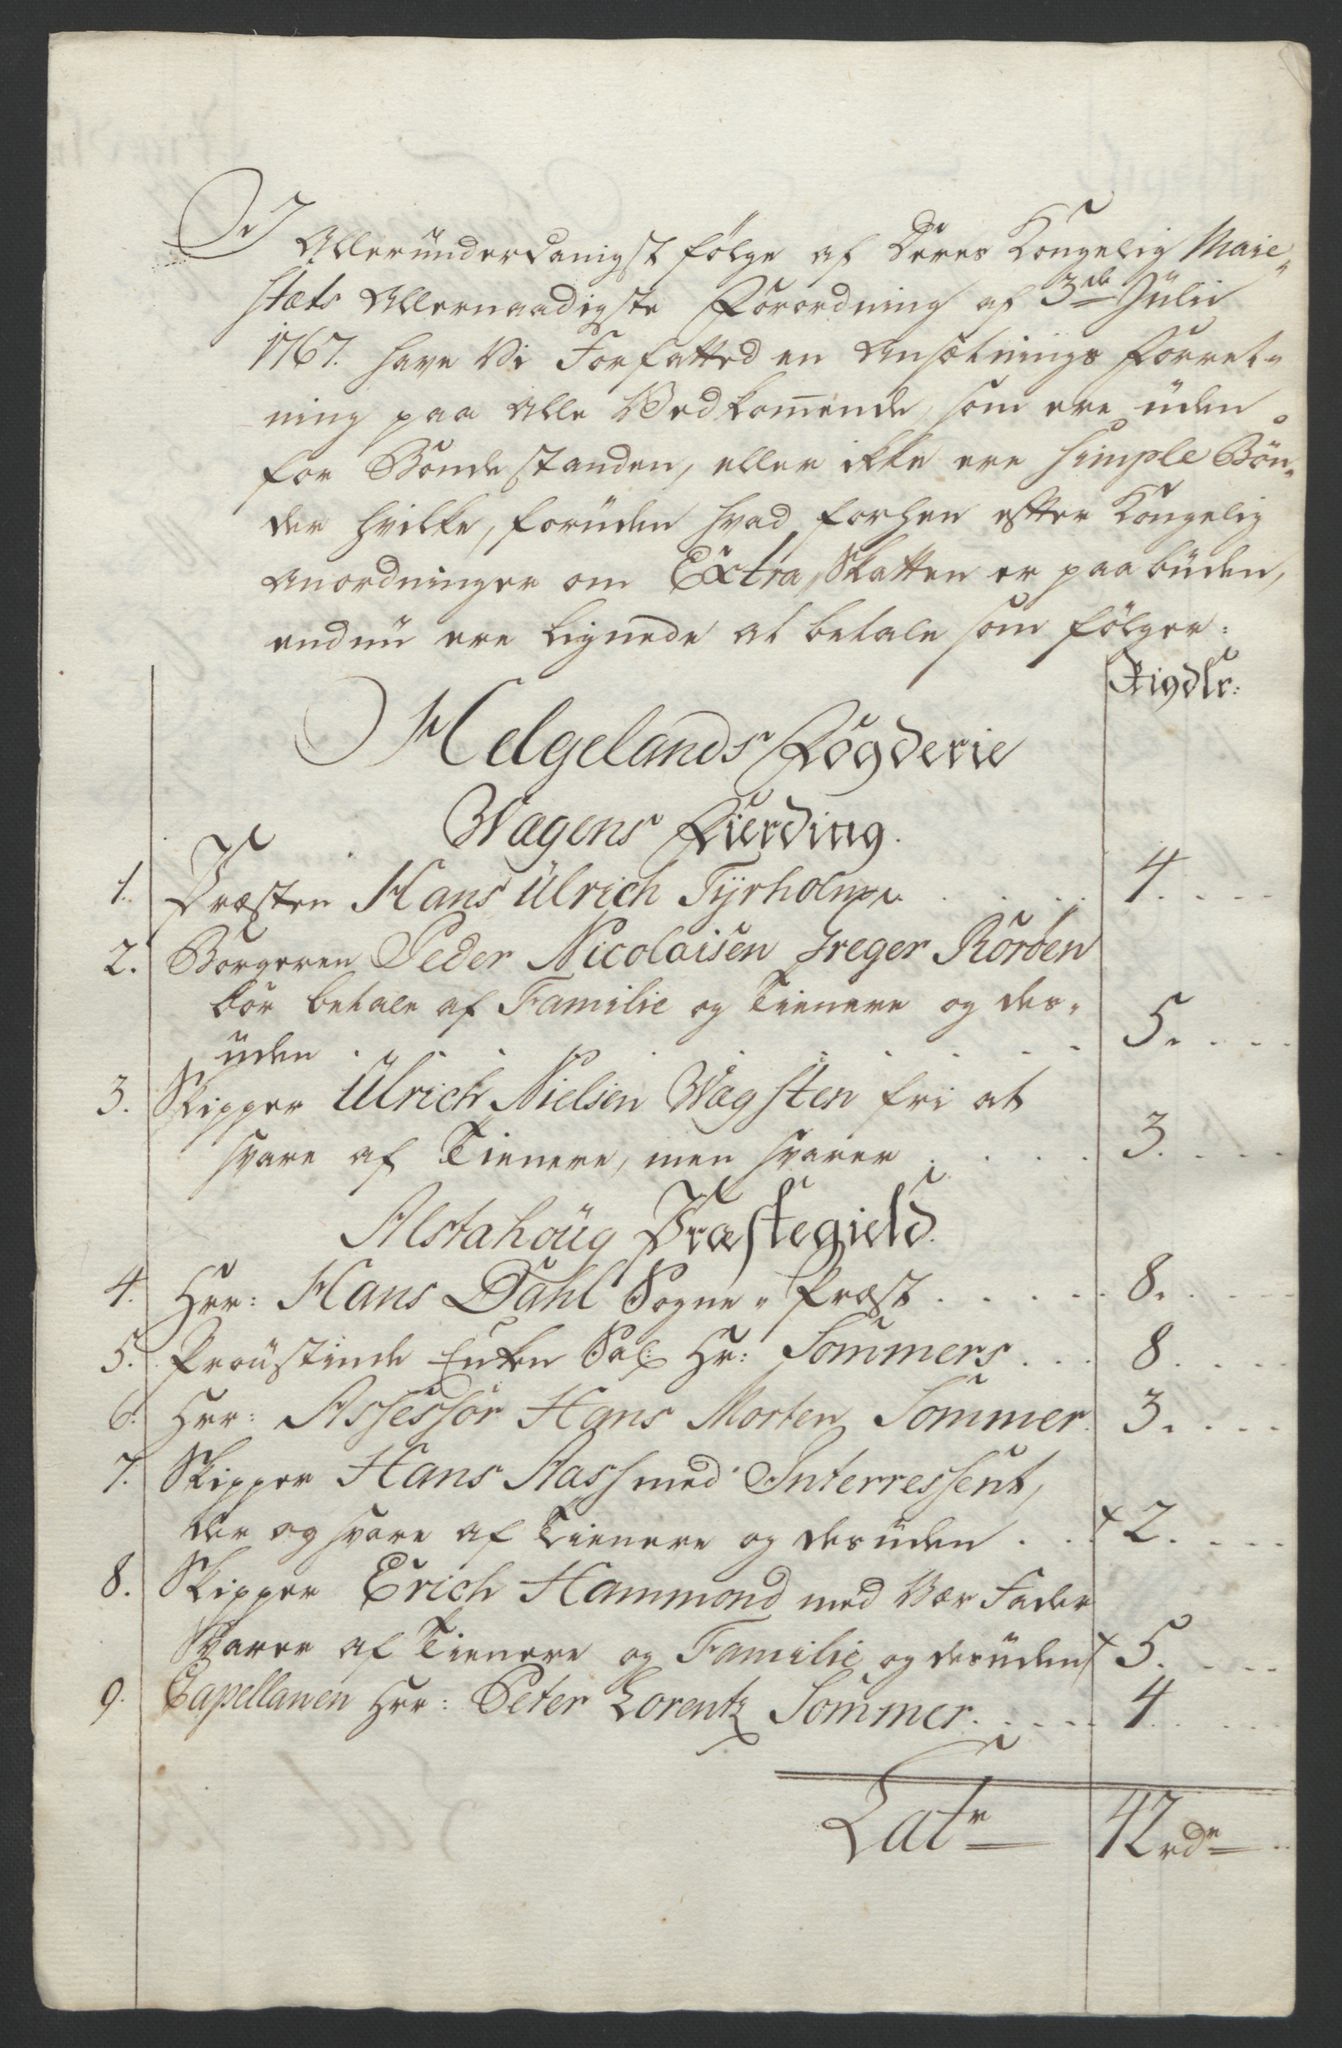 I Alleründerdanigst følge af Deres Kongelig Maie„
stæts Allernaadigste Forordning af 3de Jülii
1767. have Vi Forfatted en Ansætnings Forret„
ning paa Alle Vedkom̄ende, som ere üden„
for Bondestanden, eller ikke ere simple Bøn„
der hvilke, forüden hvad forhen efter Kongelig
Anordninger om Extra Skatten er paabüden,
endnü ere Lignede at betale som følger:
Rigdlr:
Helgelands Fögderie
Wagens Fierding.
1. Præsten Hans Ülrich Tÿrholm . . . . 4. . . .
2. Borgeren Peder Nicolaisen Greger Röröen
bör betale af Familie og Tienere og des„
üden . . . . . . . 5. . . .
3. Skipper Ülrich Nielsen Wagsten fri at
svare af Tienere, men svarer . . . . 3. . . .
Alstahoüg Præstegield.
4. Hrr: Hans Dahl Sogne„ Præst . . . . . 8. . . .
5. Proüstinde Enken Sal: Hr: Sommers . . . 8. . . .
6. Hrr: Assessor Hans Morten Sommer. 3. . . .
7. Skipper Hans Aass med Interressent,
der og svare af Tienere og desüden . . . + 2. . . .
8. Skipper Erich Hammond med Vær Fader
Svarer af Tienere og Familie og desüden + 5. . . .
9. Capellanen Hrr: Peter Lorentz Sommer. . . . . 4. . . .
Latr 42 rdr